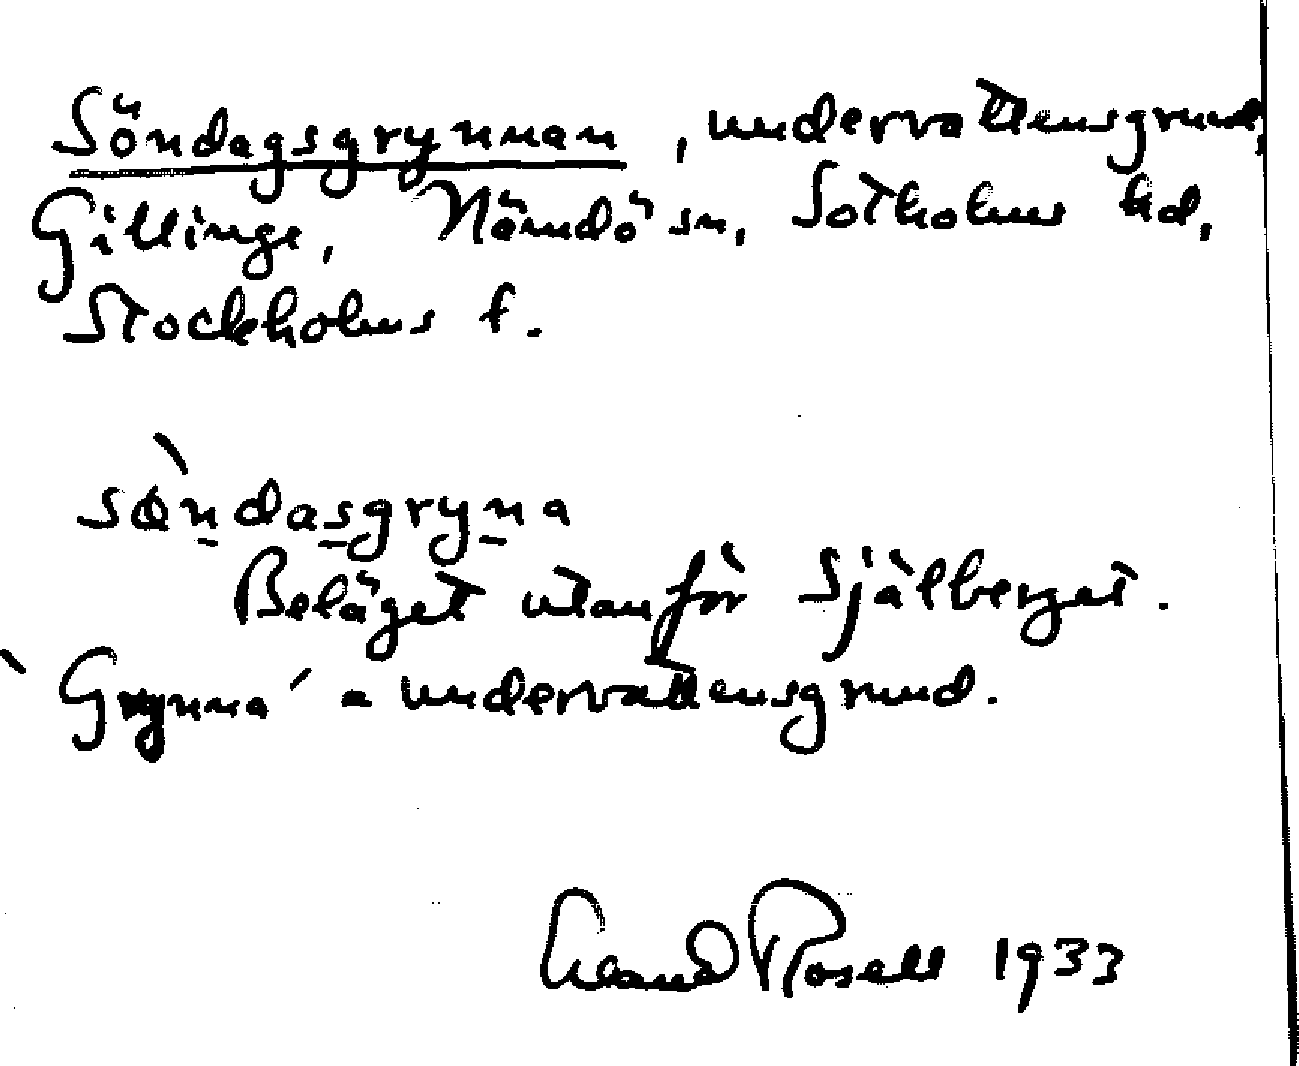 Söndagsgrynnan, undervattensgrund,
Gillinge, Nämdö sn, Sotholms hd,
Stockholms l.
sòndasgryna
Beläget utanför Själberget.
`Grynna´ = undervattensgrund.
Rosell 1933